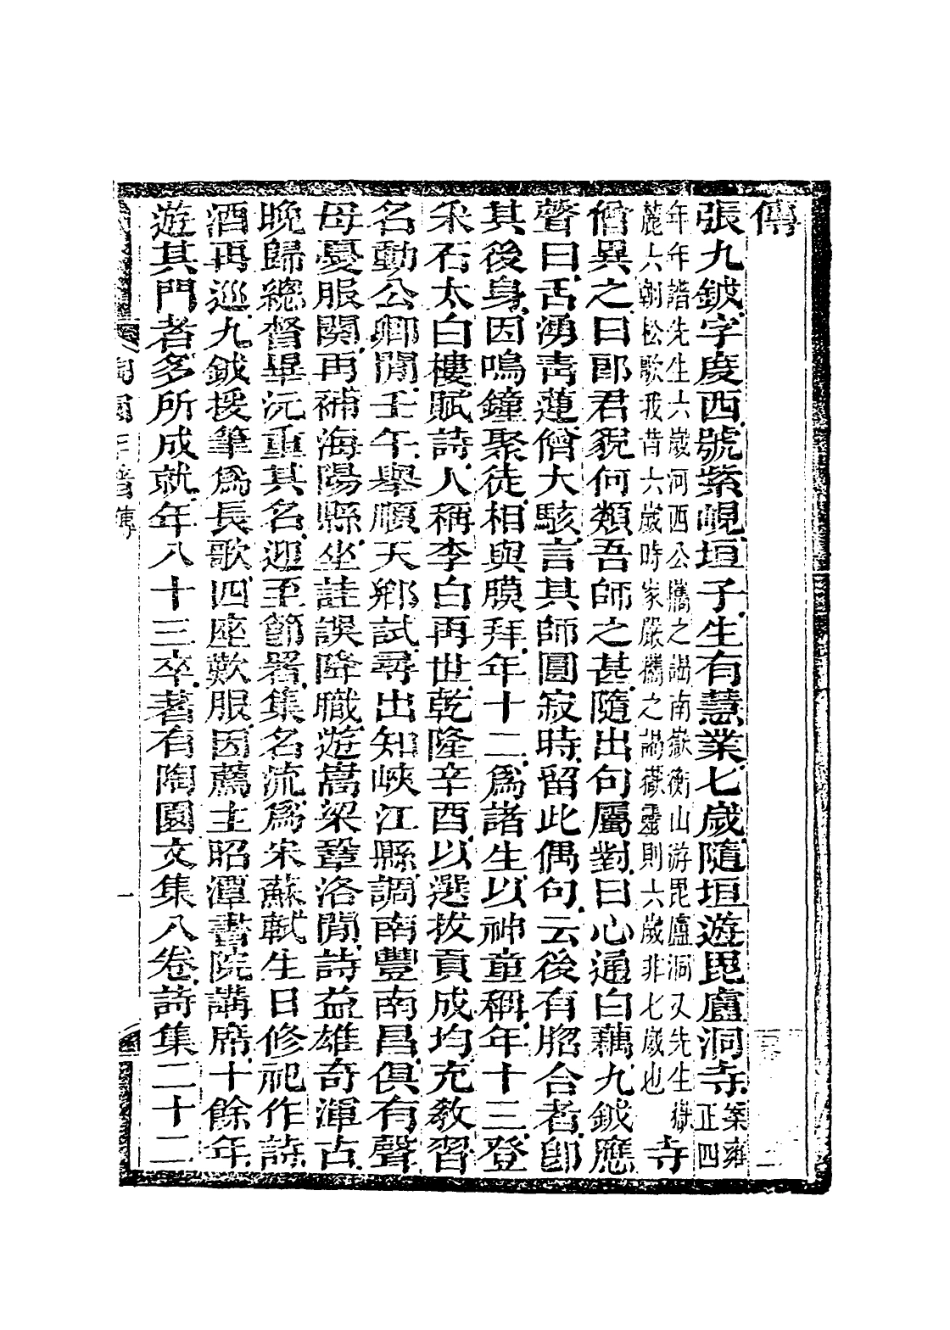 傳
張九鉞字度西號紫峴垣子生有慧業七歲隨垣遊毘盧洞寺案雍正四
年年譜先生六歲河西公攜之謁南嶽衡山游毘盧洞又先生嶽
麓六朝松歌我昔六歲時家嚴攜之謁嶽靈則六歲非七歲也寺
僧異之曰郎君貌何類吾師之甚隨出句屬對曰心通白藕九鉞應
聲曰舌湧靑蓮僧大駭言其師圓寂時留此偶句云後有脗合者卽
其後身因鳴鐘聚徒相與膜拜年十二爲諸生以神童稱年十三登
采石太白樓賦詩人稱李白再世乾隆辛酉以選拔貢成均充敎習
名動公卿閒壬午舉順天鄉試尋出知峽江縣調南豐南昌俱有聲
母憂服闋再補海陽縣坐詿誤降職遊嵩梁鞏洛閒詩益雄奇渾古
晚歸總督畢沅重其名迎至節署集名流爲宋蘇軾生日修祀作詩
酒再巡九鉞援筆爲長歌四座歎服因薦主昭潭書院講席十餘年
遊其門者多所成就年八十三卒著有陶園文集八卷詩集二十二
陶園三
傳
一